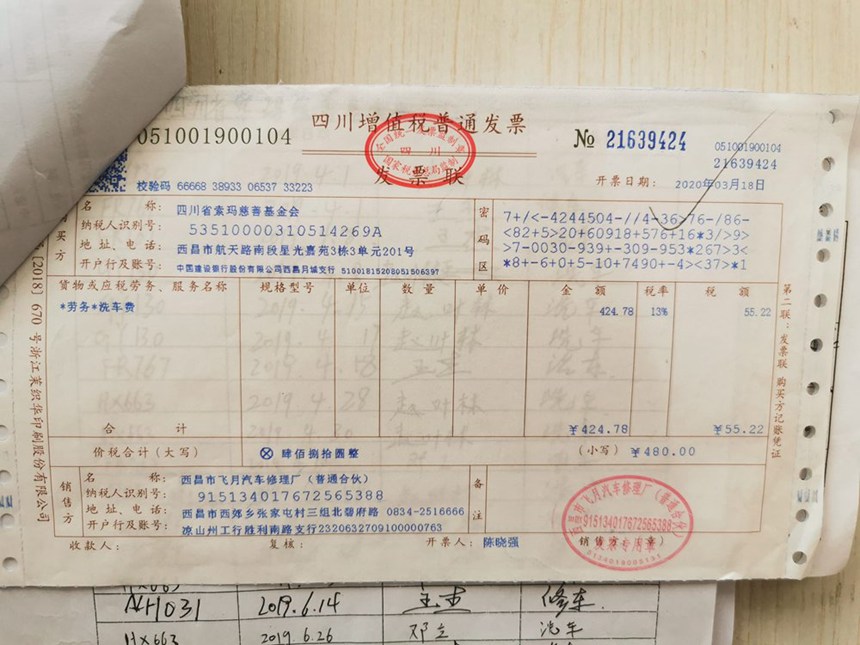 四川增值税普通发票
051001900104
№ 21639424
051001900104
21639424
发票联
校验码 66668 38933 06537 33223
开票日期： 2020年03月18日
购买方
名 称： 四川省索玛慈善基金会
纳税人识别号： 53510000310514269A
地 址、电 话： 西昌市航天路南段星光嘉苑3栋3单元201号
开户行及账号： 中国建设银行股份有限公司西昌月城支行 51001815208051506397
密码区
7+/<-4244504-//4-36>76-/86-
<82+5>20+60918+578+16*3/>9>
>7-0030-939+-309-953*267>3<
*8+-6+0+5-10+7490+-4><37>*1
货物或应税劳务、服务名称 规格型号 单位 数 量 单 价 金 额 税率 税 额
*劳务*洗车费 424.78 13% 55.22
合 计 ￥424.78 ￥55.22
价税合计（大写） ⊗ 肆佰捌拾圆整 （小写） ￥480.00
销售方
名 称： 西昌市飞月汽车修理厂（普通合伙）
纳税人识别号： 915134017672565388
地 址、电 话： 西昌市西郊乡张家屯村三组北碧府路 0834-2516666
开户行及账号： 凉山州工行胜利南路支行2320632709100000763
备注
收款人： 复核： 开票人： 陈晓强 销售方：（章）
西昌市飞月汽车修理厂（普通合伙）
915134017672565388
发票专用章
第二联：发票联 购买方记账凭证
[2018] 670 号浙江莱织华印刷股份有限公司
2019.6.14 修车
HX663 2019.6.26 邓立 洗车